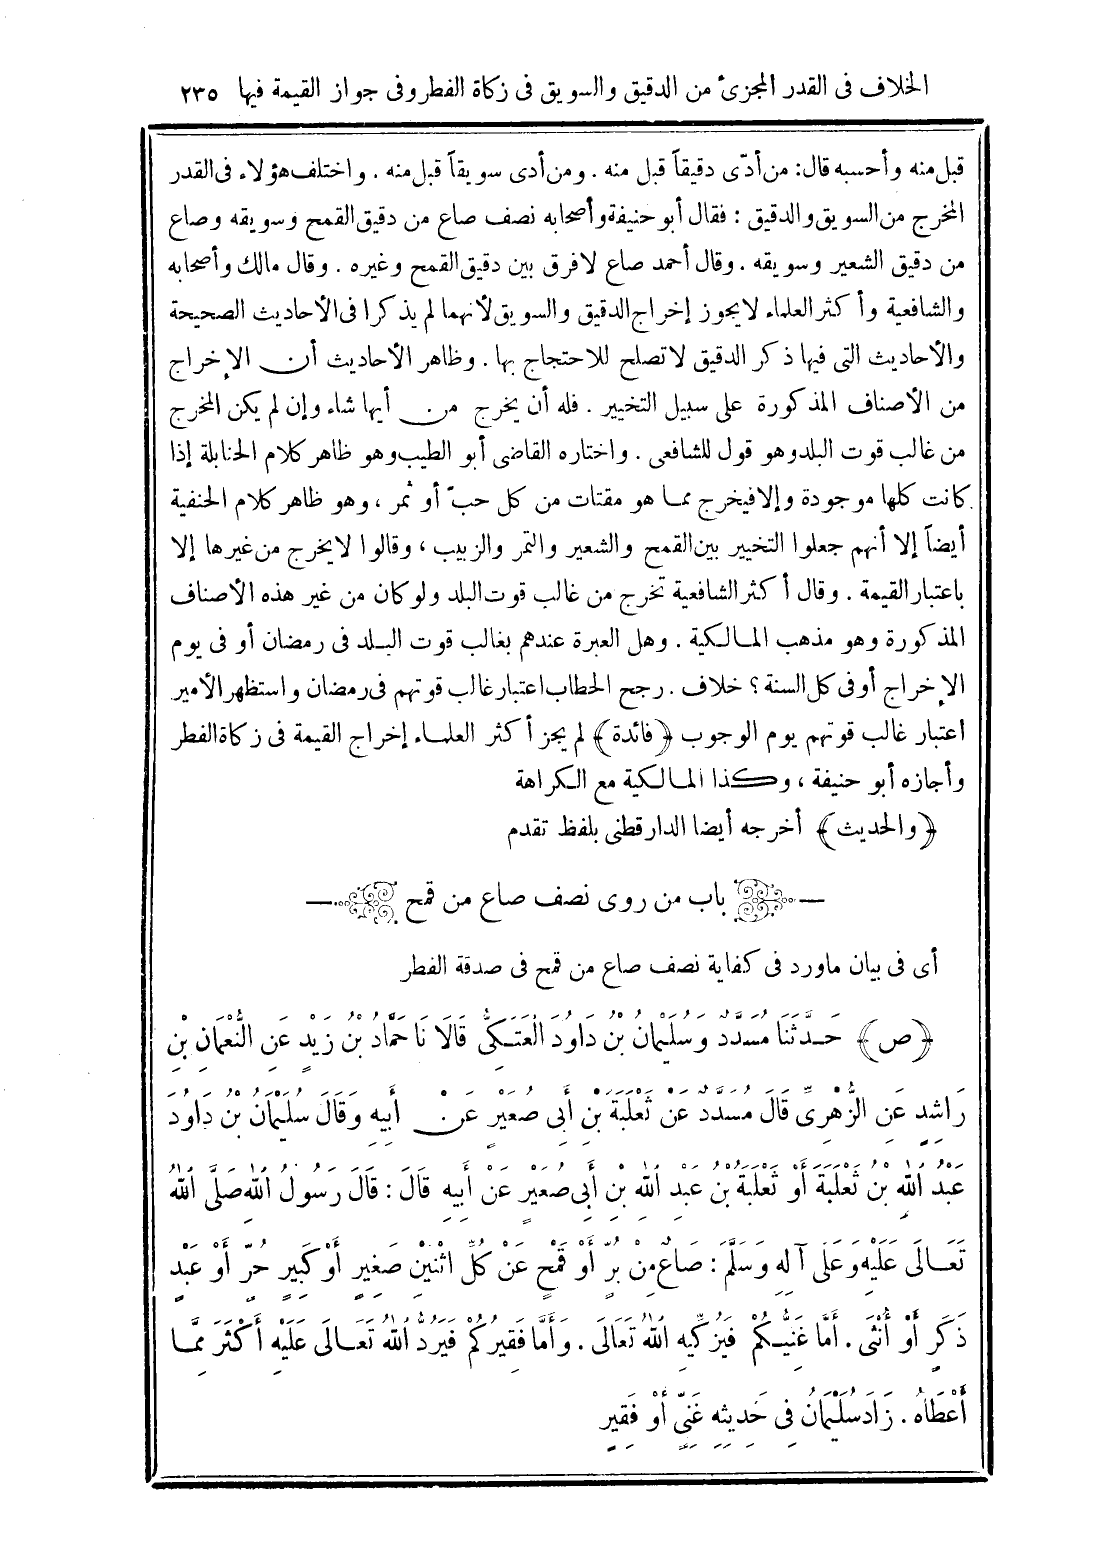 الخلاف فى القدر المجزئ من الدقيق والسويق فى زكاة الفطر وفى جواز القيمة فيها ٢٣٥
قبل منه وأحسبه قال: من أدّى دقيقاً قبل منه . ومن أدى سويقاً قبل منه . واختلف هؤلاء فى القدر
المخرج من السويق والدقيق : فقال أبو حنيفة وأصحابه نصف صاع من دقيق القمح وسويقه وصاع
من دقيق الشعير وسويقه . وقال أحمد صاع لافرق بين دقيق القمح وغيره . وقال مالك وأصحابه
والشافعية وأكثر العلماء لايجوز إخراج الدقيق والسويق لأنهما لم يذكرا فى الأحاديث الصحيحة
والأحاديث التى فيها ذكر الدقيق لاتصلح للاحتجاج بها . وظاهر الأحاديث أن الإخراج
من الأصناف المذكورة على سبيل التخيير . فله أن يخرج من أيها شاء وإن لم يكن المخرج
من غالب قوت البلد وهو قول للشافعى . واختاره القاضى أبو الطيب وهو ظاهر كلام الحنابلة إذا
كانت كلها موجودة وإلا فيخرج مما هو مقتات من كل حبّ أو ثمر ، وهو ظاهر كلام الحنفية
أيضاً إلا أنهم جعلوا التخيير بين القمح والشعير والتمر والزبيب ، وقالوا لايخرج من غيرها إلا
باعتبار القيمة . وقال أكثر الشافعية تخرج من غالب قوت البلد ولو كان من غير هذه الأصناف
المذكورة وهو مذهب المالكية . وهل العبرة عندهم بغالب قوت البلد فى رمضان أو فى يوم
الإخراج أوفى كل السنة ؟ خلاف . رجح الحطاب اعتبار غالب قوتهم فى رمضان واستظهر الأمير
اعتبار غالب قوتهم يوم الوجوب ﴿فائدة﴾ لم يجز أكثر العلماء إخراج القيمة فى زكاة الفطر
وأجازه أبو حنيفة ، وكذا المالكية مع الكراهة
﴿والحديث﴾ أخرجه أيضا الدارقطنى بلفظ تقدم
باب من روى نصف صاع من قمح
أى فى بيان ماورد فى كفاية نصف صاع من قمح فى صدقة الفطر
﴿ص﴾ حَدَّثَنَا مُسَدَّدٌ وَسُلَيْمَانُ بْنُ دَاوُدَ الْعَتَكِىُّ قَالَا نَا حَمَّادُ بْنُ زَيْدٍ عَنِ النُّعْمَانِ بْنِ
رَاشِدٍ عَنِ الزُّهْرِىِّ قَالَ مُسَدَّدٌ عَنْ ثَعْلَبَةَ بْنِ أَبِى صُعَيْرٍ عَنْ أَبِيهِ وَقَالَ سُلَيْمَانُ بْنُ دَاوُدَ
عَبْدُ اللهِ بْنُ ثَعْلَبَةَ أَوْ ثَعْلَبَةُ بْنُ عَبْدِ اللهِ بْنِ أَبِى صُعَيْرٍ عَنْ أَبِيهِ قَالَ : قَالَ رَسُولُ اللهِ صَلَّى اللهُ
تَعَالَى عَلَيْهِ وَعَلَى آلِهِ وَسَلَّمَ : صَاعٌ مِنْ بُرٍّ أَوْ قَمْحٍ عَنْ كُلِّ اثْنَيْنِ صَغِيرٍ أَوْ كَبِيرٍ حُرٍّ أَوْ عَبْدٍ
ذَكَرٍ أَوْ أُنْثَى . أَمَّا غَنِيُّكُمْ فَيُزَكِّيهِ اللهُ تَعَالَى . وَأَمَّا فَقِيرُكُمْ فَيَرُدُّ اللهُ تَعَالَى عَلَيْهِ أَكْثَرَ مِمَّا
أَعْطَاهُ . زَادَ سُلَيْمَانُ فِى حَدِيثِهِ غَنِىٍّ أَوْ فَقِيرٍ